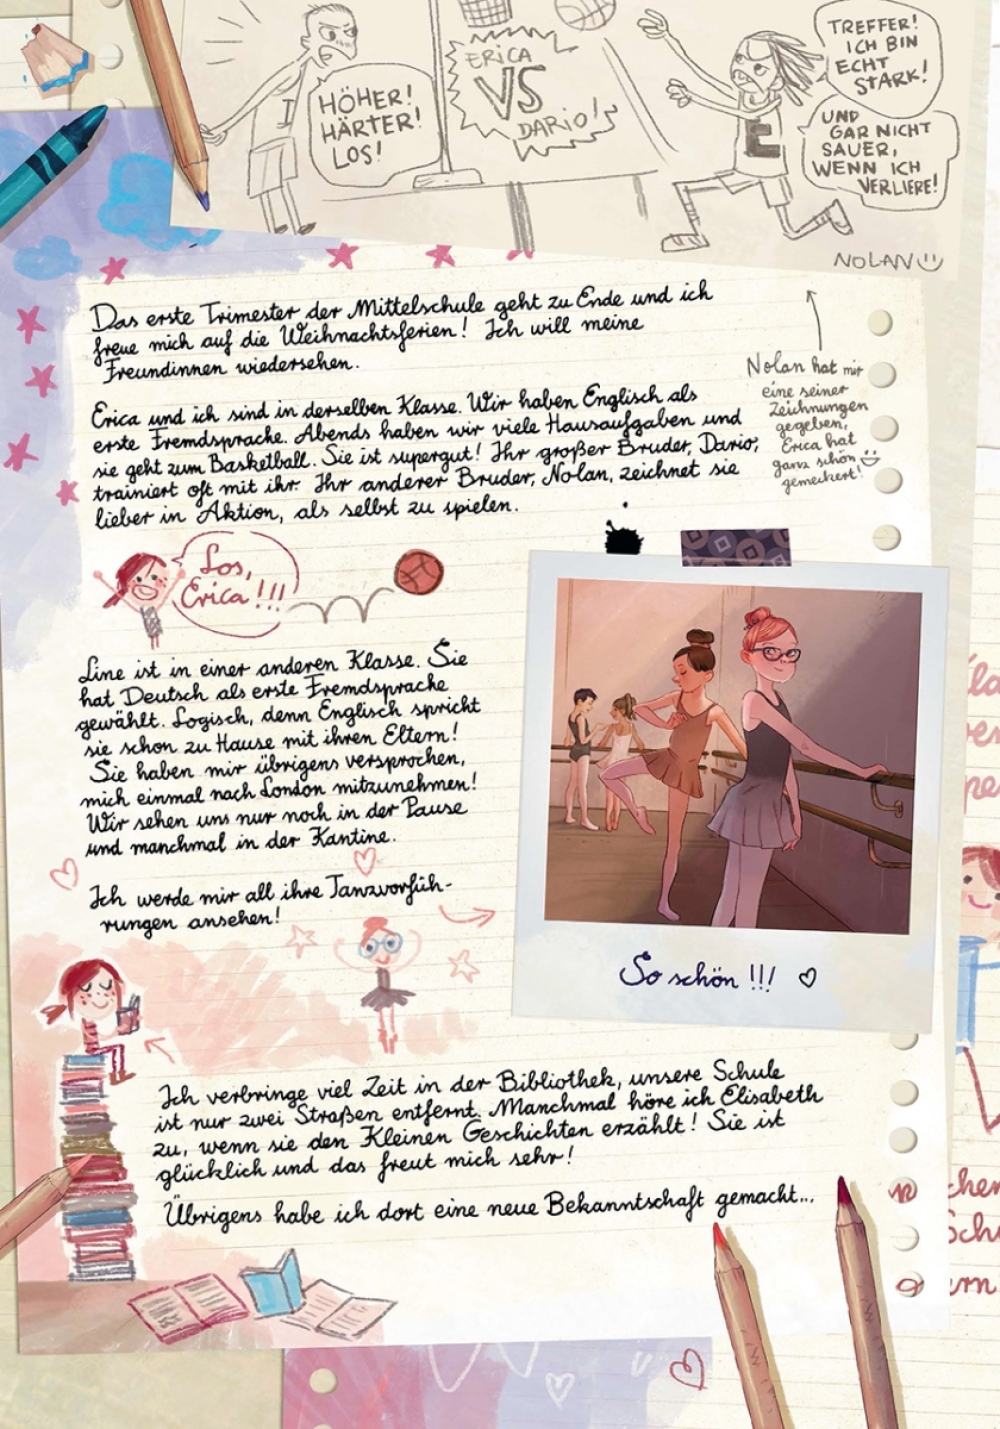 HÖHER!
HÄRTER!
LOS!
ERICA
VS
DARIO!
TREFFER!
ICH BIN
ECHT
STARK!
UND
GAR NICHT
SAUER,
WENN ICH
VERLIERE!
I
E
NOLAN
Das erste Trimester der Mittelschule geht zu Ende und ich
freue mich auf die Weihnachtsferien! Ich will meine
Freundinnen wiedersehen.
Nolan hat mir
eine seiner
Zeichnungen
gegeben,
Erica hat
ganz schön
gemeckert!
Erica und ich sind in derselben Klasse. Wir haben Englisch als
erste Fremdsprache. Abends haben wir viele Hausaufgaben und
sie geht zum Basketball. Sie ist supergut! Ihr großer Bruder, Dario,
trainiert oft mit ihr. Ihr anderer Bruder, Nolan, zeichnet sie
lieber in Aktion, als selbst zu spielen.
Los,
Erica!!!
Line ist in einer anderen Klasse. Sie
hat Deutsch als erste Fremdsprache
gewählt. Logisch, denn Englisch spricht
sie schon zu Hause mit ihren Eltern!
Sie haben mir übrigens versprochen,
mich einmal nach London mitzunehmen!
Wir sehen uns nur noch in der Pause
und manchmal in der Kantine.
Ich werde mir all ihre Tanzvorfüh-
rungen ansehen!
So schön !!!
Ich verbringe viel Zeit in der Bibliothek, unsere Schule
ist nur zwei Straßen entfernt. Manchmal höre ich Elisabeth
zu, wenn sie den Kleinen Geschichten erzählt! Sie ist
glücklich und das freut mich sehr!
Übrigens habe ich dort eine neue Bekanntschaft gemacht...